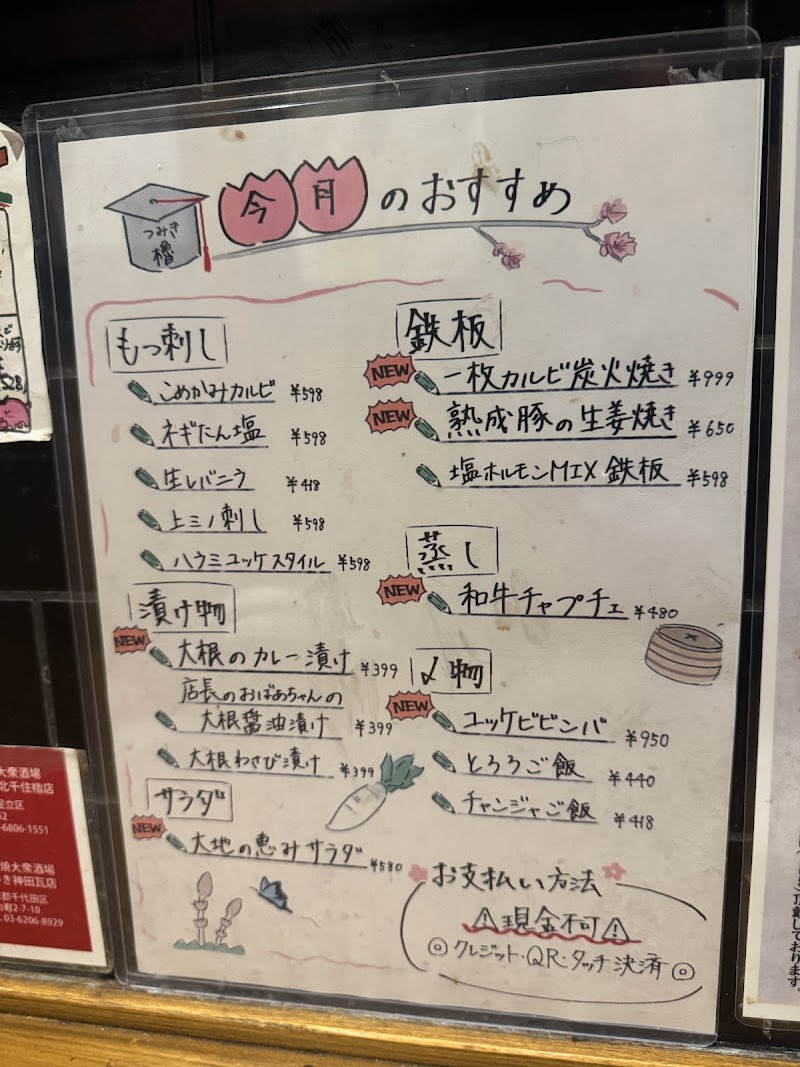 つみき
櫓
今月のおすすめ
もつ刺し
こめかみカルビ ¥598
ネギたん塩 ¥598
生レバニラ ¥418
上ミノ刺し ¥598
ハラミユッケスタイル ¥598
漬け物
NEW 大根のカレー漬け ¥399
店長のおばあちゃんの
大根醤油漬け ¥399
大根わさび漬け ¥399
サラダ
NEW 大地の恵みサラダ ¥580
鉄板
NEW 一枚カルビ炭火焼き ¥999
NEW 熟成豚の生姜焼き ¥650
塩ホルモンMIX鉄板 ¥598
蒸し
NEW 和牛チャプチェ ¥480
〆物
NEW ユッケビビンバ ¥950
とろろご飯 ¥440
チャンジャご飯 ¥418
お支払い方法
⚠現金不可⚠
◎クレジット・QR・タッチ決済◎
大衆酒場
北千住櫓店
足立区
-6806-1551
焼大衆酒場
き神田瓦店
都千代田区
町2-7-10
03-6206-8929
頂戴しております。